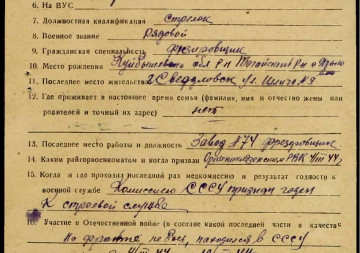 6. На ВУС
7. Должностная квалификация стрелок
8. Военное звание рядовой
9. Гражданская специальность фрезеровщик
10. Место рождения Куйбышевская обл
11. Последнее место жительства г. Свердловск ул.
12. Где проживает в настоящее время семья (фамилия, имя и отчество жены или
родителей и точный их адрес) нет
13. Последнее место работы и должность Завод №74 фрезеровщик
14. Каким райгорвоенкоматом и когда призван РВК
15. Когда и где проходил раз последний медкомиссию и результат годности к
военной службе Комиссию СССУ признан годен
к строевой службе
16. Участие в Отечественной войне (в составе какой последней части в качестве
На фронте не был, находился в СССУ